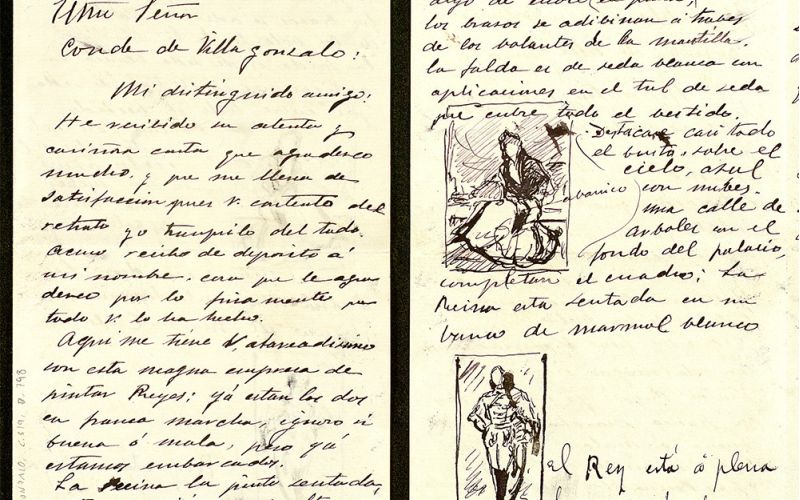 Exmo Señor
Conde de Villagonzalo:
Mi distinguido amigo:
He recibido su atenta y
cariñosa carta que agradezco
mucho, y que me llena de
satisfacción pues V. contento del
retrato yo tranquilo del todo.
Acuso recibo de deposito á
mi nombre, cosa que le agra
dezco por lo finamente que
todo V. lo ha hecho.
Aqui me tiene V. atareadisimo
con esta magna empresa de
pintar Reyes; yá estan los dos
en franca marcha, ignoro si
buena ó mala, pero yá
estamos embarcados.
La Reina la pinto sentada,
GONZALO, C.319, D. 798
los brazos se adibinan á trabes
de los bolantes de la mantilla.
la falda es de seda blanca con
aplicaciones en el tul de seda
que cubre todo el vestido.
Destacase casi todo
el busto sobre el
cielo, azul
abanico
con nubes.
una calle de
arboles con el
fondo del palacio,
completan el cuadro; La
Reina está sentada en un
banco de marmol blanco
el Rey está á plena